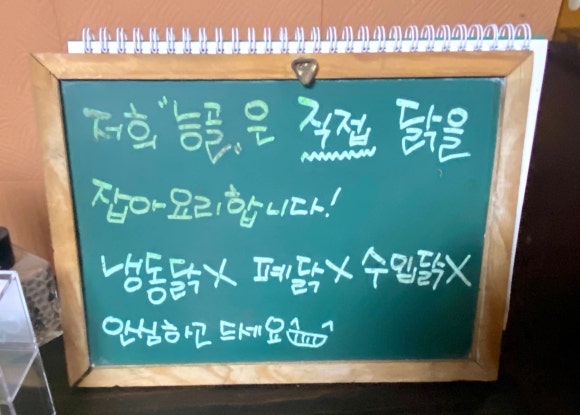 저희 "능골"은 직접 닭을
잡아요리합니다!
냉동닭X 폐닭X 수입닭X
안심하고 드세요